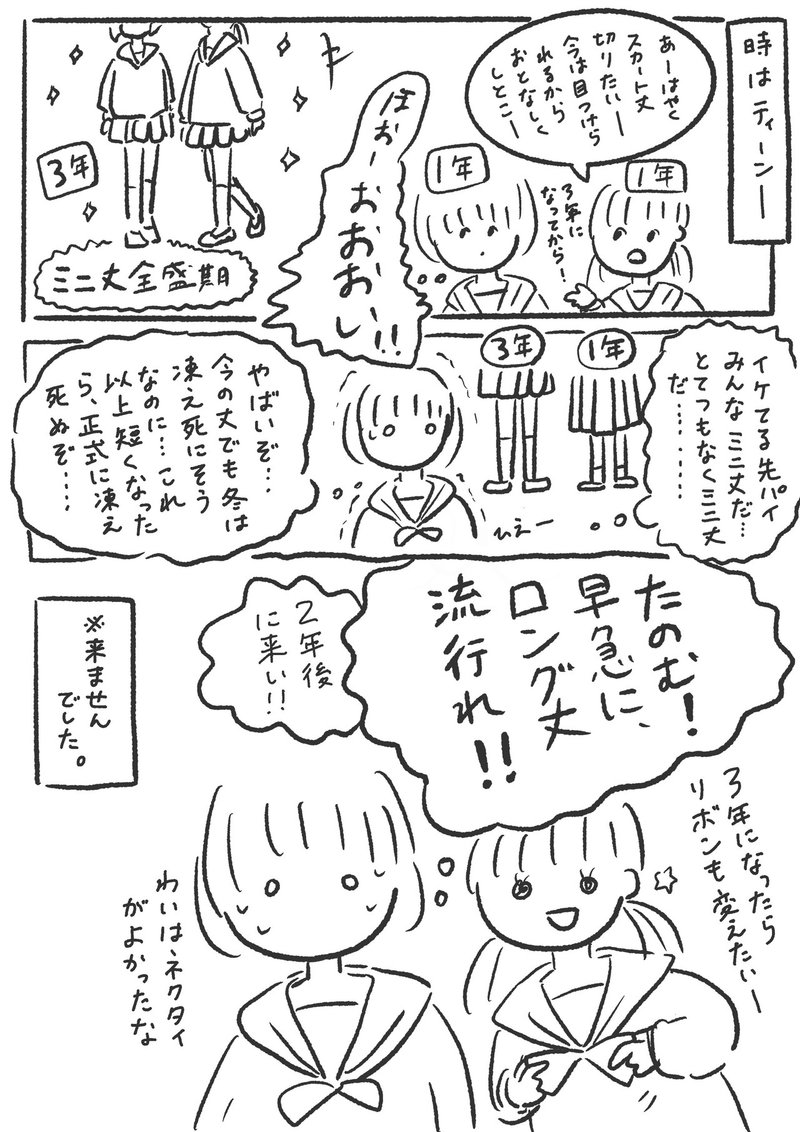 時はティーン—
あーはやく
スカート丈
切りたいー
今は目つけら
れるから
おとなしく
しとこー
1年
1年
3年に
なってから!
ほおーおおおい!!
3年
ミニ丈全盛期
イケてる先パイ
みんなミニ丈だ…
とてつもなくミニ丈
だ………
1年
3年
ひえー
やばいぞ…
今の丈でも冬は
凍え死にそう
なのに…これ
以上短くなった
ら、正式に凍え
死ぬぞ……
たのむ!
早急に、
ロング丈
流行れ!!
2年後
に来い!!
※来ません
でした。
3年になったら
リボンも変えたいー
わいは、ネクタイ
がよかったな